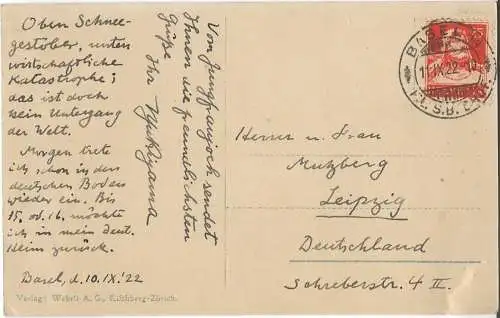 Oben Schnee-
gestöber, unten
wirtschaftliche
Katastrophe;
das ist doch
kein Untergang
der Welt.
Morgen trete
ich schon in den
deutschen Boden
wieder ein. Bis
15. od. 16. möchte
ich in mein deut.
Heim zurück.
Basel, d. 10. IX. '22
Von Jungfraujoch sendet
Ihnen die freundlichsten
Grüße
Ihr
BASEL
11. IX. 22
Herrn u. Frau
Mutzberg
Leipzig
Deutschland
Schreberstr. 4 II.
Verlag: Wehrli A. G., Kilchberg-Zürich.